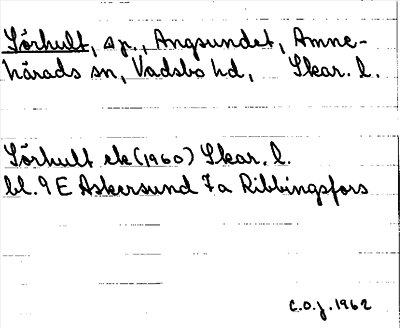 Sörhult, sp., Angsundet, Amne-
härads sn, Vadsbo hd, Skar. l.
Sörhult ek (1960) Skar. l.
bl. 9 E Askersund 7a Ribbingsfors
C.O.J. 1962